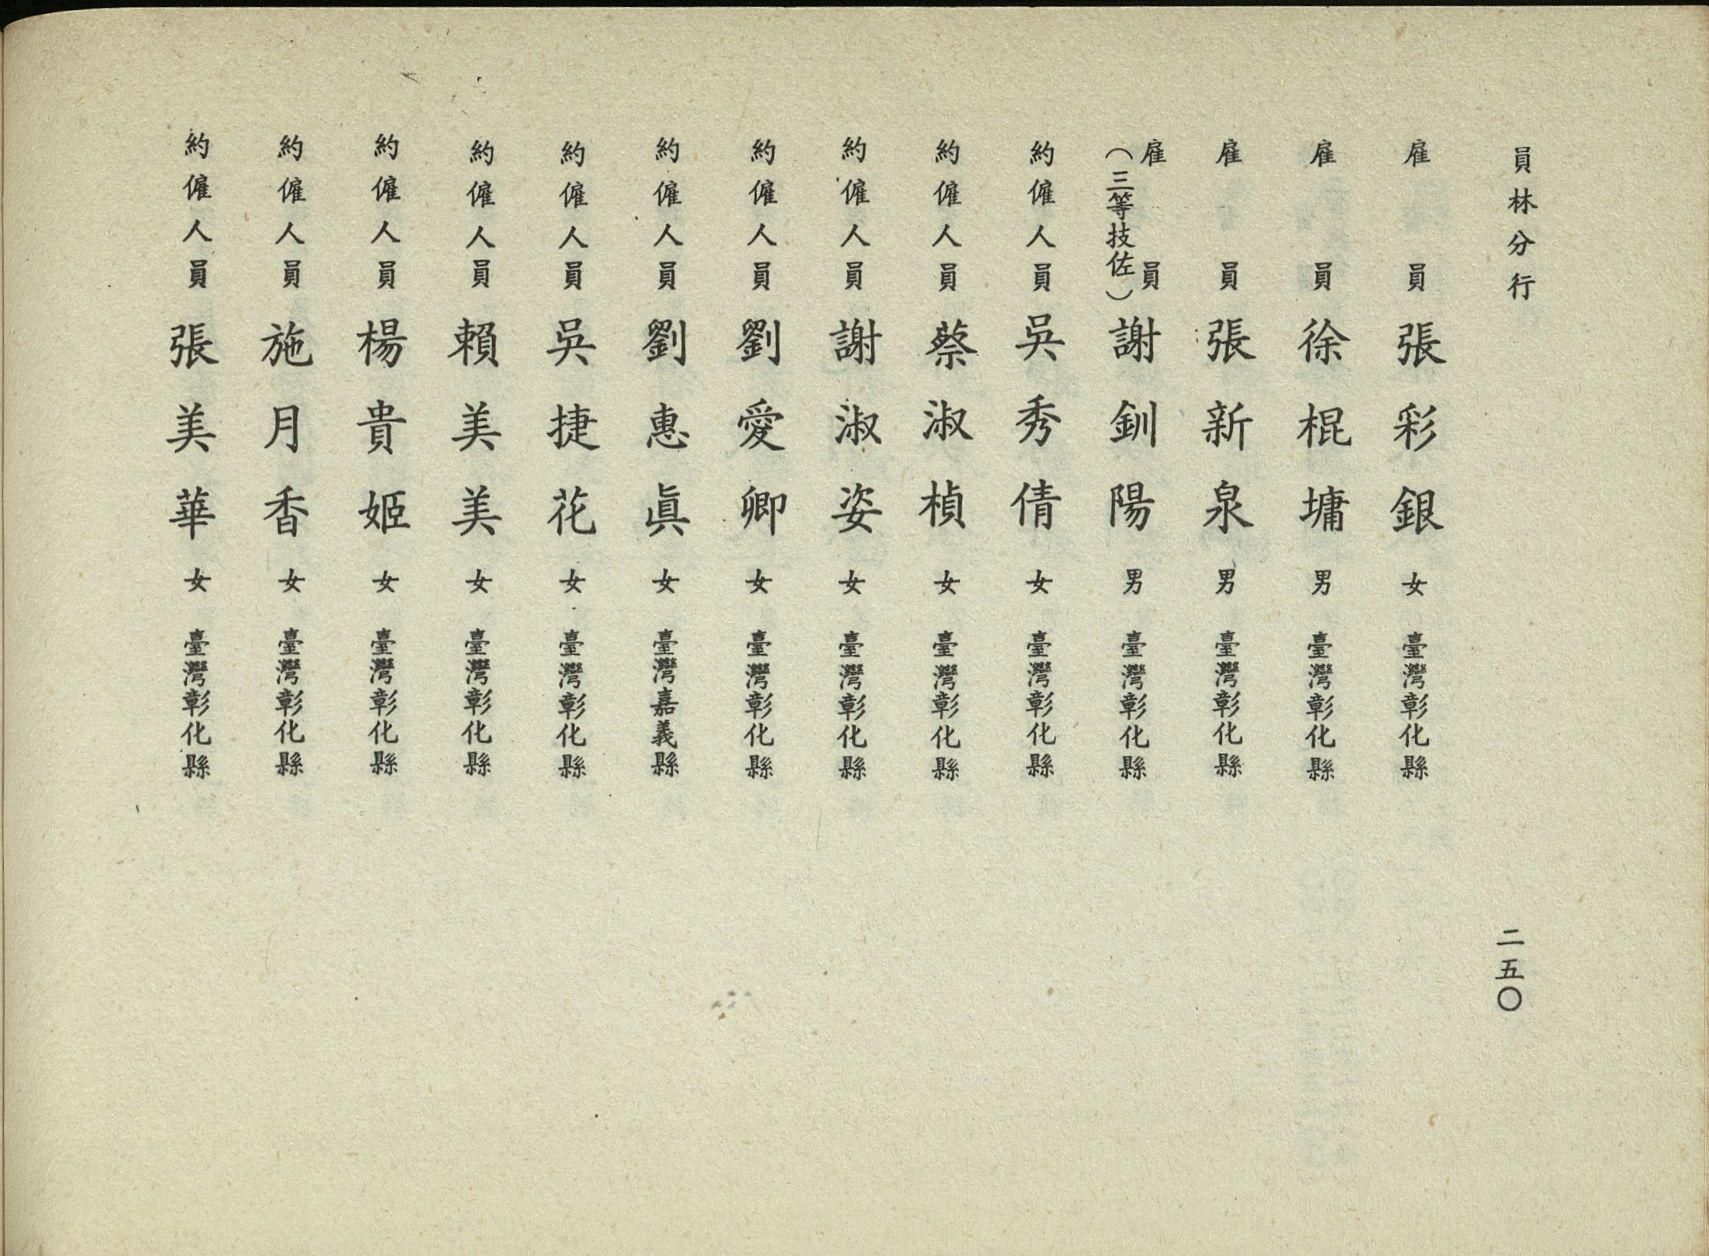 員林分行
二五〇
雇員 張彩銀 女 臺灣彰化縣
雇員 徐棍墉 男 臺灣彰化縣
雇員 張新泉 男 臺灣彰化縣
雇員(三等技佐) 謝釧陽 男 臺灣彰化縣
約僱人員 吳秀倩 女 臺灣彰化縣
約僱人員 蔡淑楨 女 臺灣彰化縣
約僱人員 謝淑姿 女 臺灣彰化縣
約僱人員 劉愛卿 女 臺灣彰化縣
約僱人員 劉惠眞 女 臺灣嘉義縣
約僱人員 吳捷花 女 臺灣彰化縣
約僱人員 賴美美 女 臺灣彰化縣
約僱人員 楊貴姬 女 臺灣彰化縣
約僱人員 施月香 女 臺灣彰化縣
約僱人員 張美華 女 臺灣彰化縣